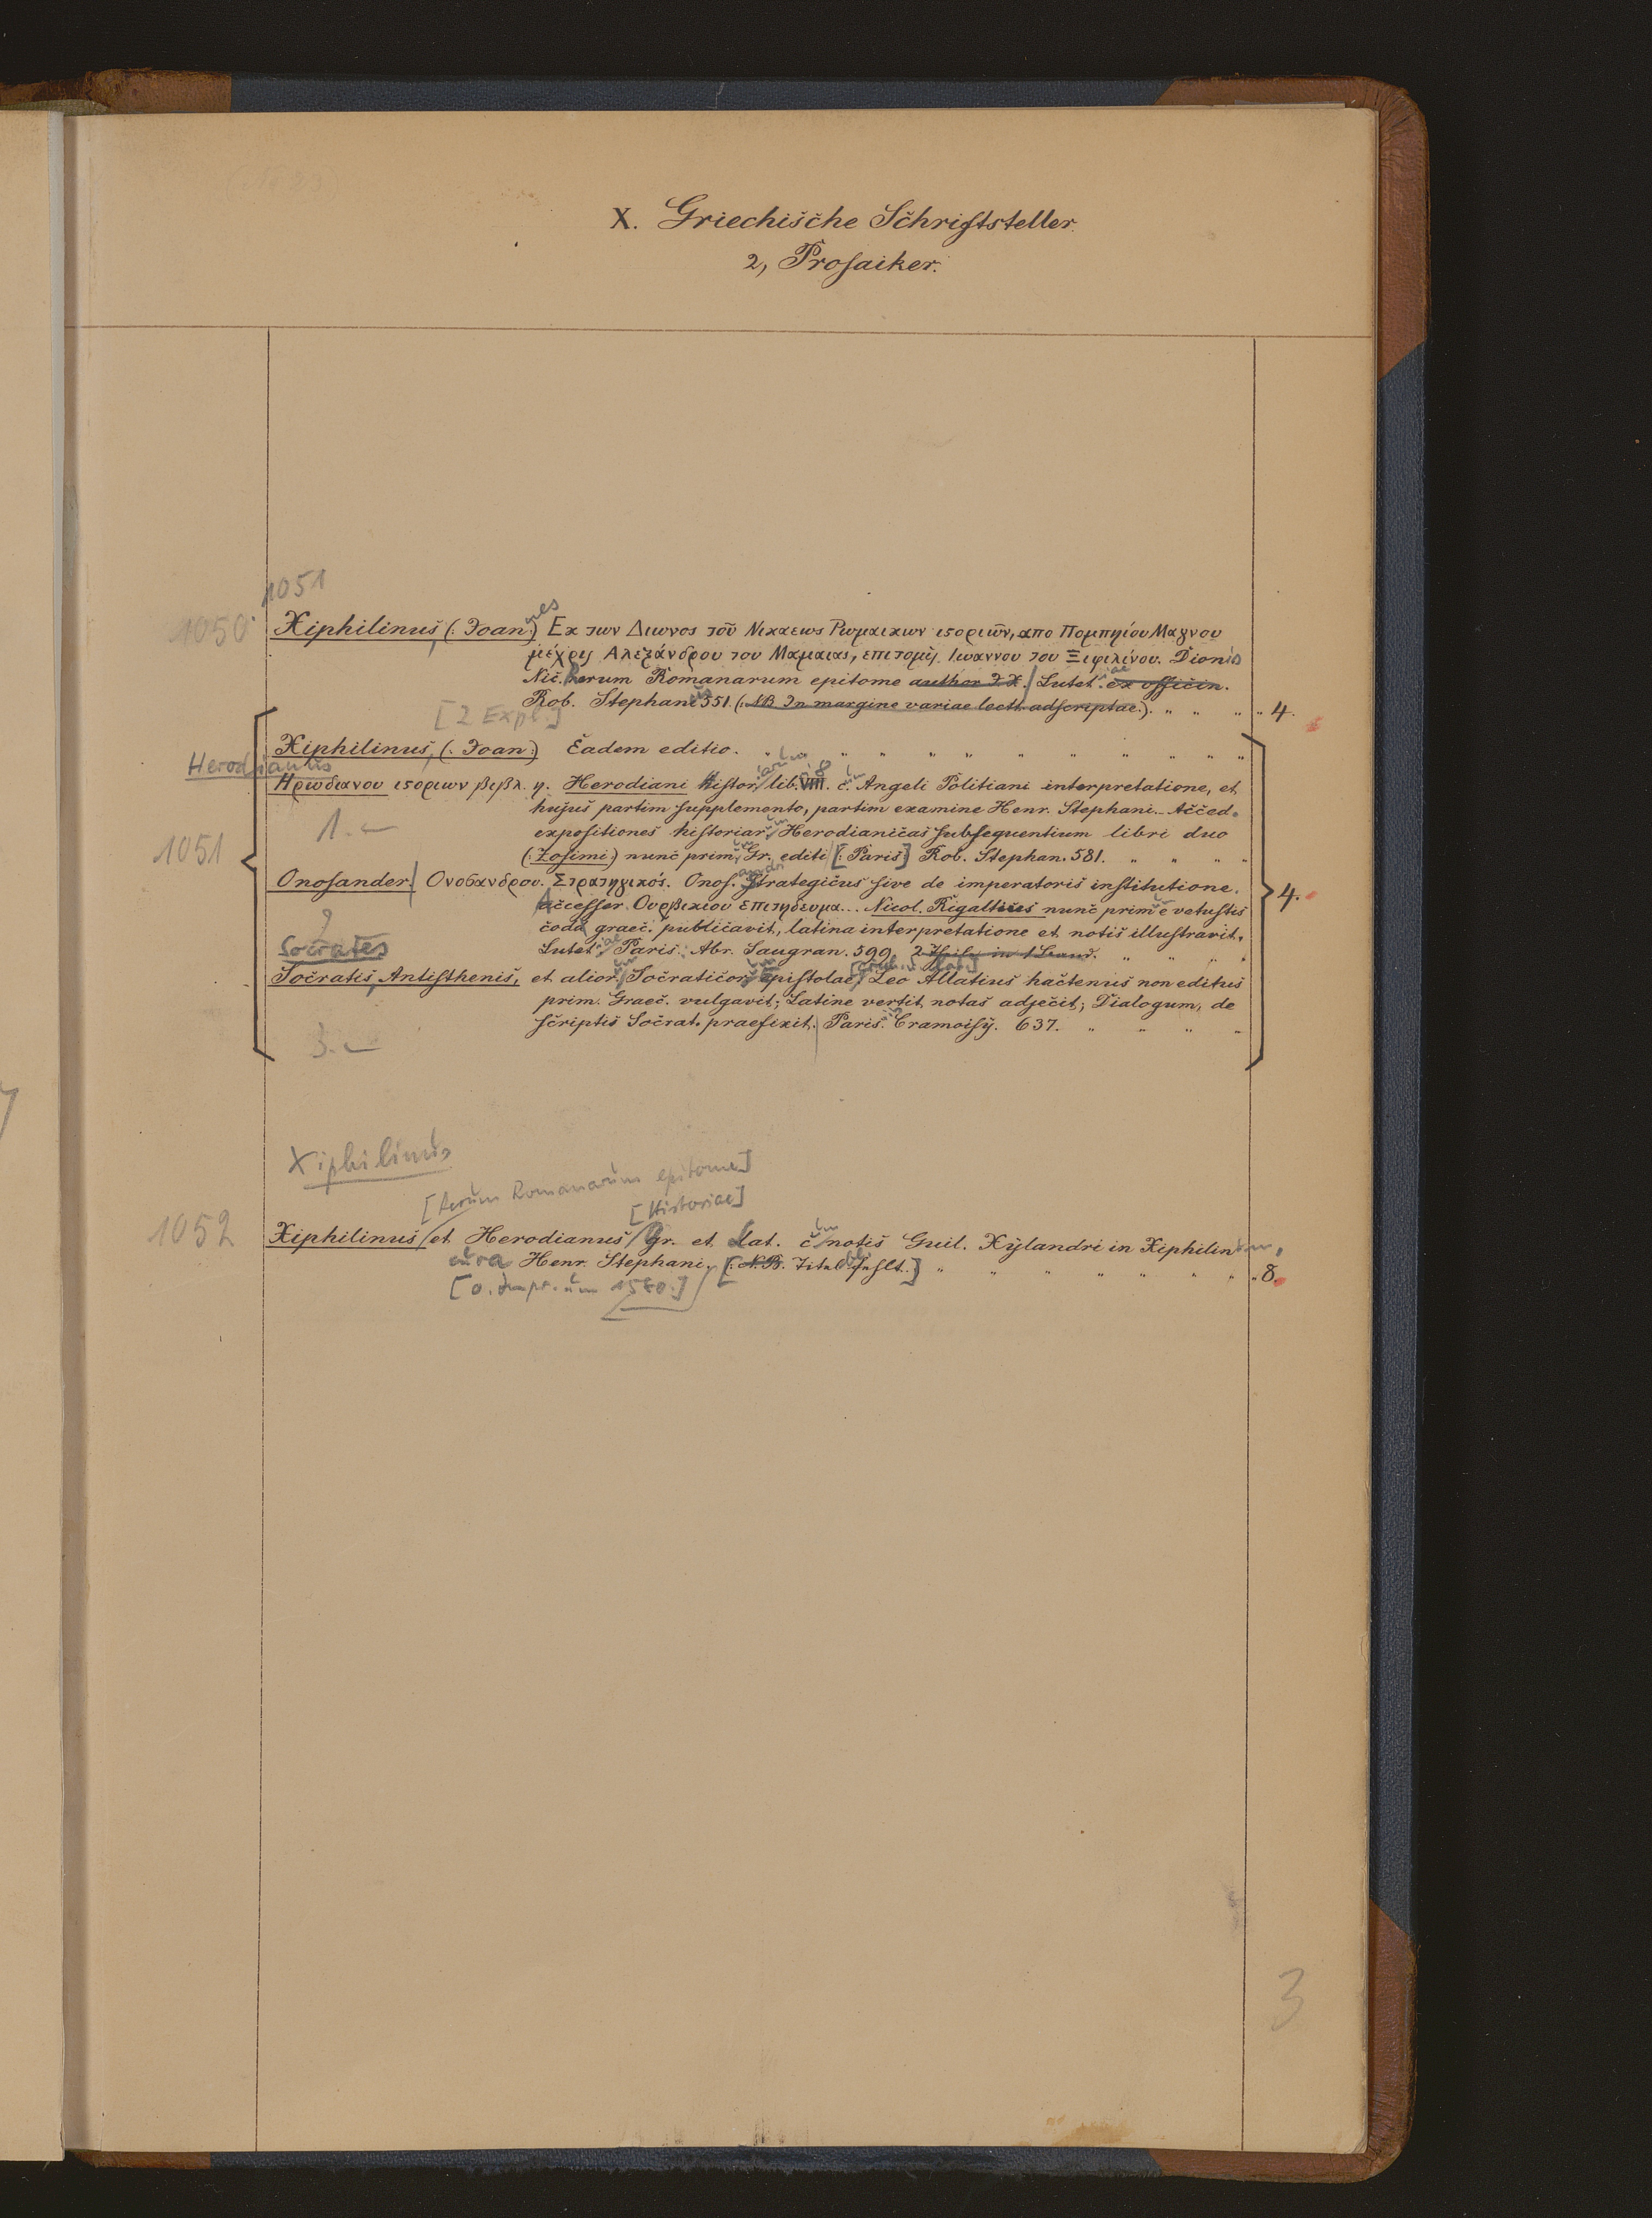 X. Griechische Schriftsteller.
2, Prosaiker.
1051
1050
Xiphilinus, (: Joan:)nes Εκ των Διωνος τοῦ Νικαεως Ρωμαικων ιςοριῶν, απο Πομπηίου Μαγνου
μέχρις Αλεξάνδρου του Μαμαιας, επιτομὴ. Ιωαννου του Ξιφιλίνου. Dionis
Nic. Rerum Romanarum epitome author I. X. Lutetiae ex officin.
Rob. Stephanus 551. (: NB. In margine variae lectt. adscriptae.:). " " " " 4.
[2 Expl.]
Xiphilinus, (: Joan:) Eadem editio. " " " " " " " " "
Herodianus
Ηρωδιανου ιςοριων βιβλ. η. Herodiani Historiarum lib. VIII. 8 cum Angeli Politiani interpretatione, et
hujus partim supplemento, partim examine Henr. Stephani. Acced.
1.
expositiones historiarum Herodianicas subsequentium libri duo
1051
(: Zosimi:) nunc primum Gr. editi [: Paris:] Rob. Stephan. 581. " " " "
Onosander Ονοσανδρου. Στρατηγικός. Onosandri Strategicus sive de imperatoris institutione.
Accesser. Ουρβικιου Επιτηδευμα... Nicol. Rigaltius nunc primum e vetustis
4.
2
codd. graec. publicavit, latina interpretatione et notis illustravit.
Socrates
Lutetiae Paris. Abr. Saugran. 599. 2 Theile in 1 Band. " " " "
Socratis, Antisthenis, et aliorum Socraticorum Epistolae, [graec. et lat.] Leo Allatius hactenus non editus
prim. Graec. vulgavit; Latine vertit notas adjecit; Dialogum, de
scriptis Socrat. praefixit. Paris. Cramoisy. 637. " " " "
3.
Xiphilinus
[Rerum Romanarum epitome]
[Historiae]
1052
Xiphilinus et Herodianus Gr. et Lat. cum notis Guil. Xylandri in Xiphilinum,
cura Henr. Stephani. [: N.B. Titelbl. fehlt.] " " " " " " " " 8.
[o. Impr. um 1580.]
3